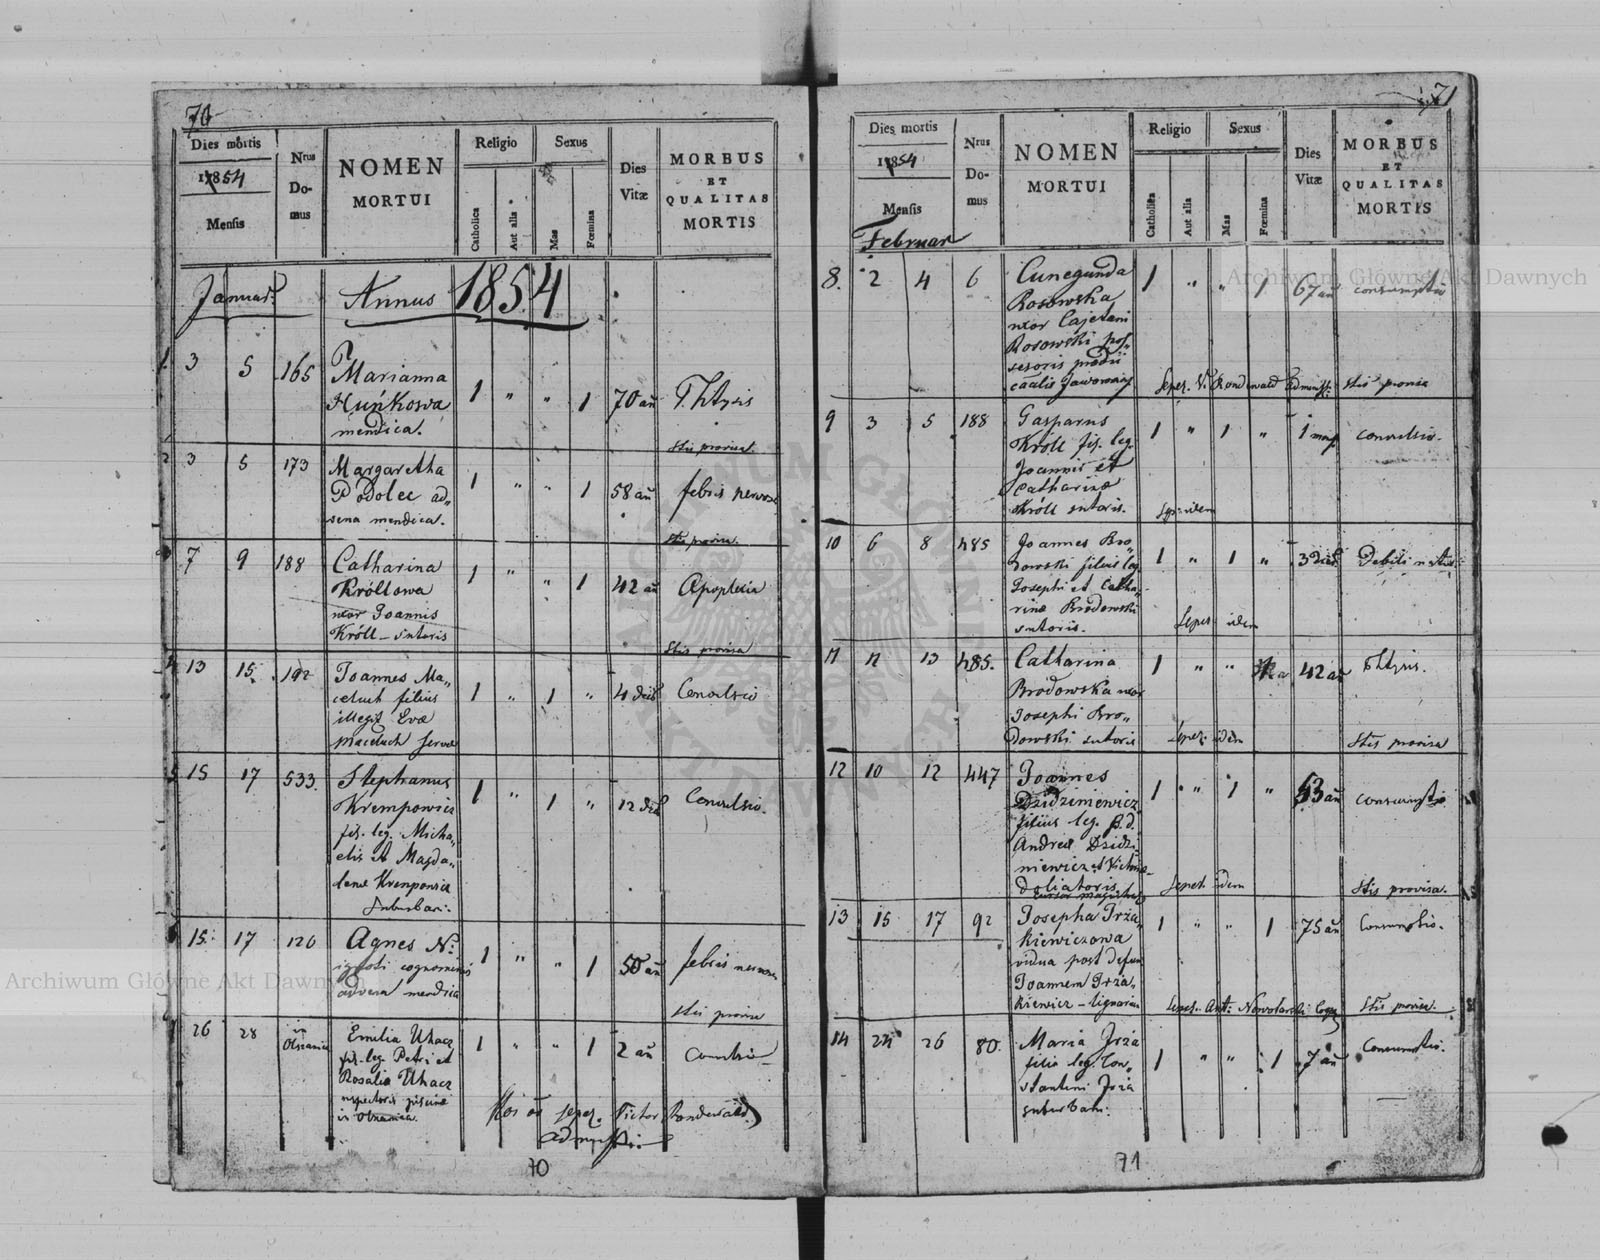 70
Dies mortis
1854
Mensis
Nrus
Do-
mus
NOMEN
MORTUI
Religio
Catholica
Aut alia
Sexus
Mas
Fœmina
Dies
Vitæ
MORBUS
ET
QUALITAS
MORTIS
Januar.
Annus 1854
1 3 5 165
Marianna
Huńkowa
mendica.
1 " " 1 70 añ
Phtysis
Stis provisa.
2 3 5 173
Margaretha
Podolec ad„
vena mendica.
1 " " 1 58 añ
febris nervosa
Stis provisa
7 9 188
Catharina
Króllowa
uxor Joannis
Króll - sutoris
1 " " 1 42 añ
Apoplexia
Stis provisa
4 13 15 192
Joannes Ma„
celuch filius
illegit Evæ
Maceluch servæ
1 " 1 " 4 dies
Convulsio
5 15 17 533.
Stephanus
Krempowicz
fil. leg. Micha„
elis et Magda„
lenæ Krempowicz
suburban:
1 " 1 " 12 dies
Convulsio.
15. 17 126
Agnes N.
ignoti cognominis
advena mendica
1 " " 1 50 añ
febris nervosa
Stis provisa
26 28 in
Olszanica
Emilia Uhacz
fil. leg. Petri et
Rosaliæ Uhacz
inspectoris piscinæ
in Olszanica.
1 " " 1 2 añ
Convulsio
sepel. Victor Rondewald
admnstr:
70
71
Dies mortis
1854
Mensis
Nrus
Do-
mus
NOMEN
MORTUI
Religio
Catholica
Aut alia
Sexus
Mas
Fœmina
Dies
Vitæ
MORBUS
ET
QUALITAS
MORTIS
Februar
8. 2 4 6
Cunegunda
Rosowska
uxor Cajetani
Rosowski pos„
sesoris prædii
1 " " 1 67 añ
consumptio
Sepel. Vi. Rondewald admnst: Stis provisa
9 3 5 188
Gasparus
Króll fil. leg.
Joannis et
Catharinæ
Króll sutoris.
1 " 1 " 1 mens
convulsio.
Sep: idem
10 6 8 485
Joannes Bro„
dowski filius leg
Josephi et Catha„
rinæ Brodowski
sutoris.
1 " 1 " 3 dies
Sepel idem
11 11 13 485.
Catharina
Brodowska uxor
Josephi Bro„
dowski sutoris
1 " " 42 añ
Phtysis.
Sepel: idem
Stis provisa
12 10 12 447
Joannes
Dzidziniewicz
filius leg. p.d.
Andreæ Dzidzi„
niewicz et Victoriæ
doliatoris
1 " 1 " 53 añ
consumptio
Sepel idem
Stis provisa.
13 15 17 92
Josepha Irża„
kiewiczowa
vidua post defun
Joannem Irża„
kiewicz - lignarium
1 " " 1 75 añ
Consumptio.
Sepel. Ant: Nowotarski Coop
Stis provisa.
14 24 26 80.
Maria Irża
filia leg. Con„
stantini Irża
suburbani.
1 " " 1 7 añ
Consumptio.
71
Archiwum Główne Akt Dawnych
Archiwum Główne Akt Dawnych
ARCHIWUM GŁÓWNE AKT DAWNYCH